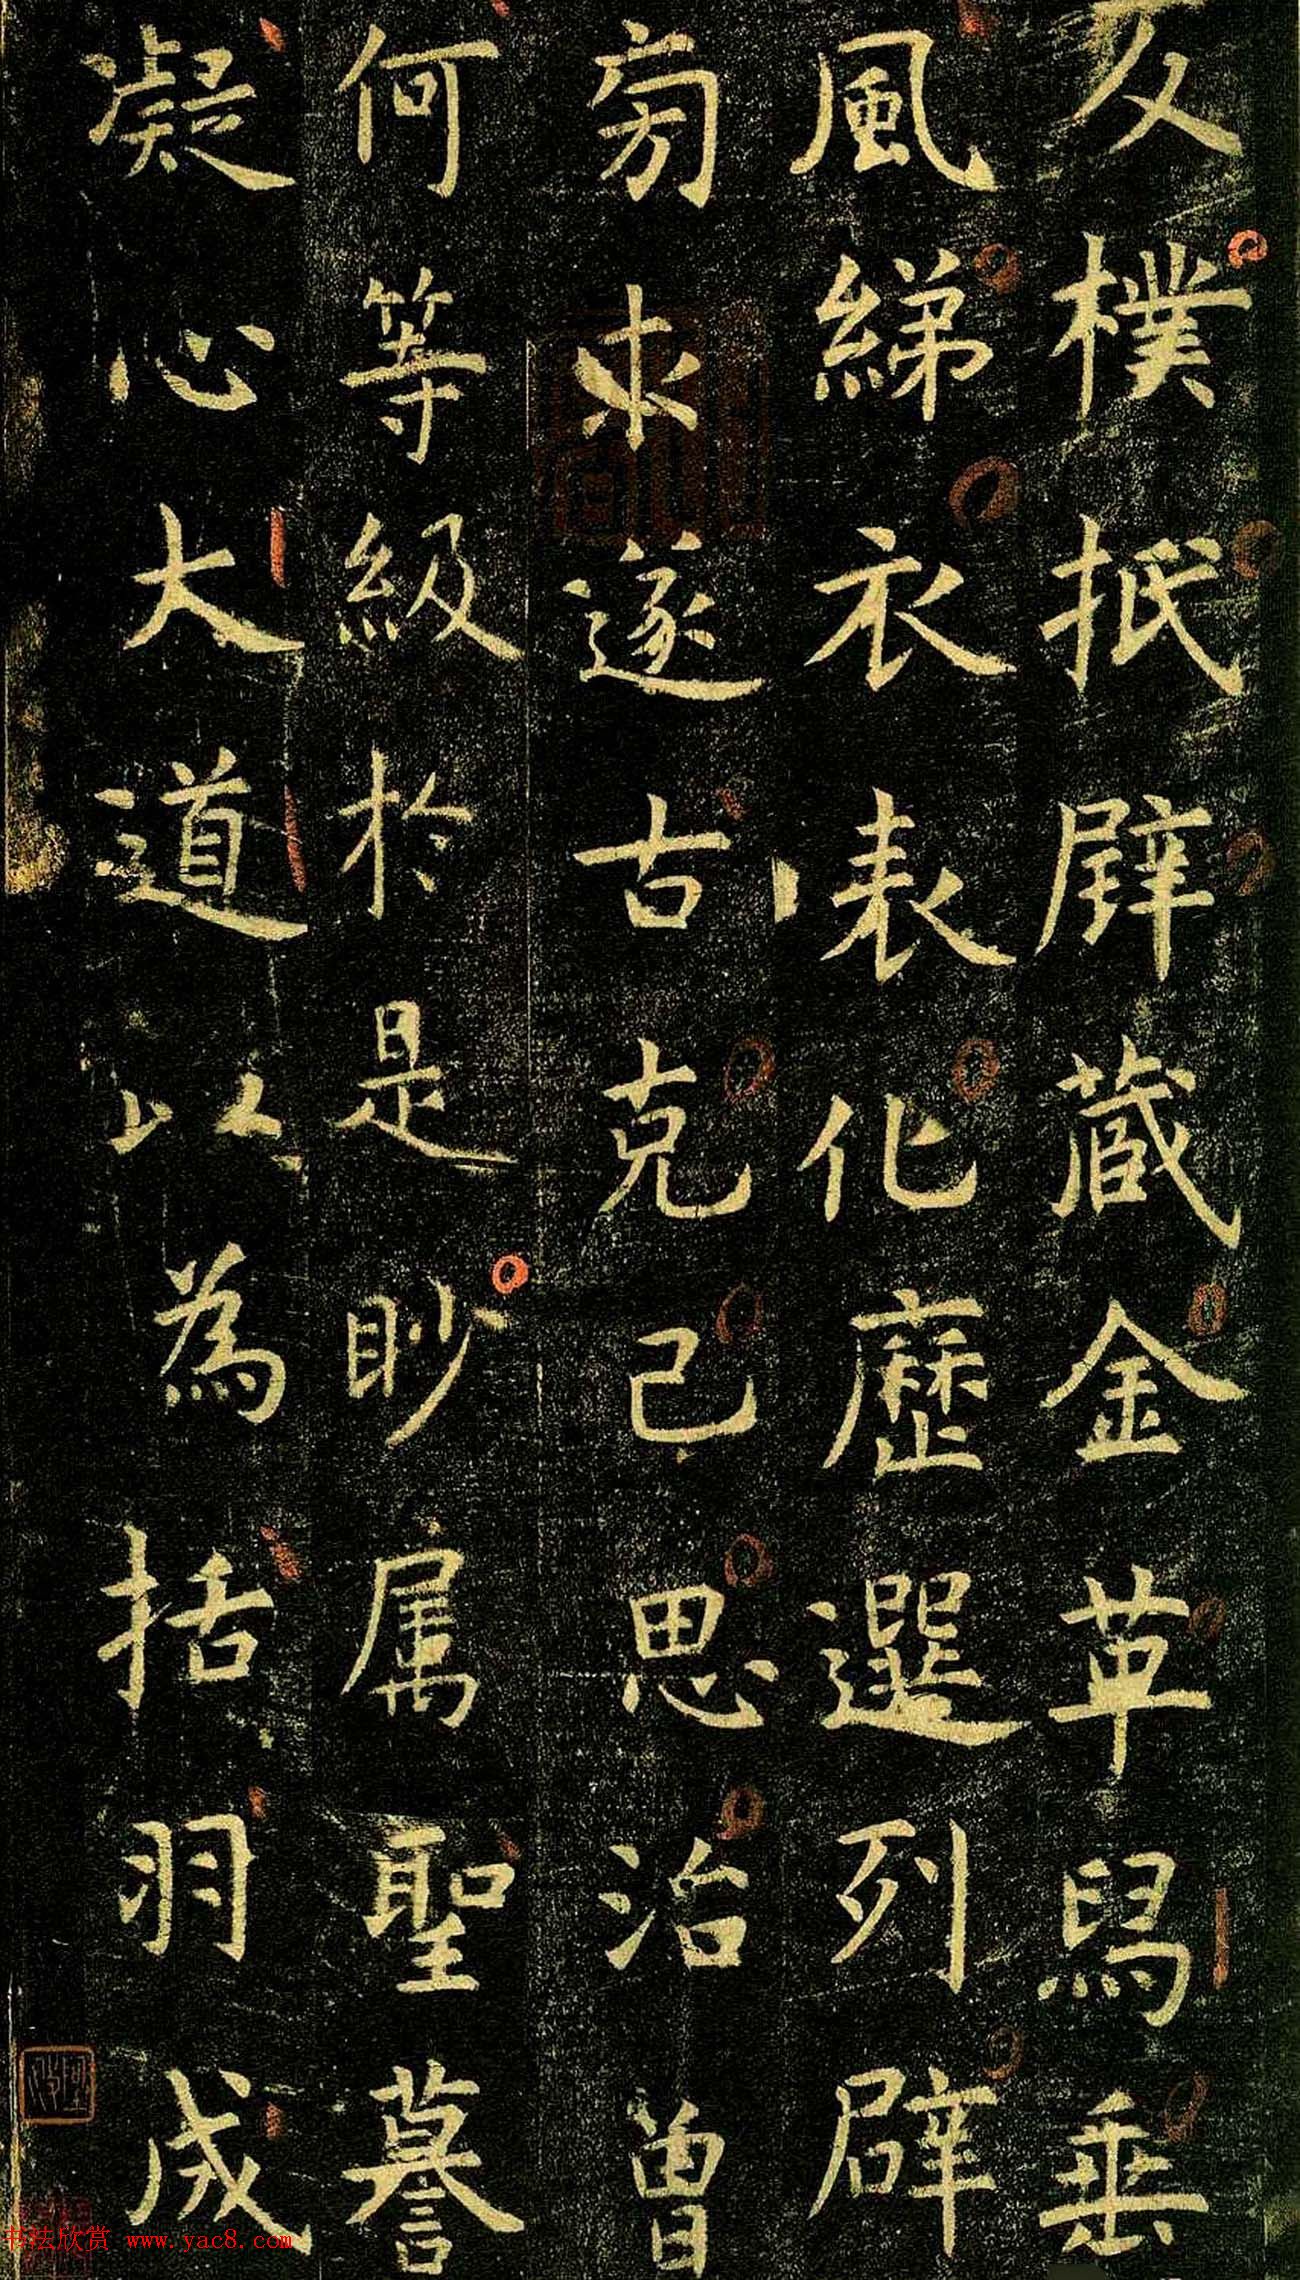 反樸抵璧藏金革舄垂
風綈衣表化歷選列辟
旁求遂古克己思治曾
何等級於是眇属聖謩
凝心大道以為括羽成
书法欣赏 www.yac8.com